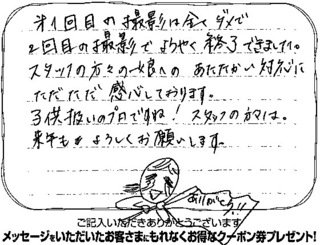 第1回目の撮影は全てダメで
2回目の撮影でようやく終了できました。
スタッフの方々の娘への あたたかい対応に
ただただ 感心しております。
子供扱いのプロですね! スタッフの方々は。
来年も よろしくお願いします。
ありがとう!!
ご記入いただきありがとうございます
メッセージをいただいたお客さまにもれなくお得なクーポン券プレゼント!